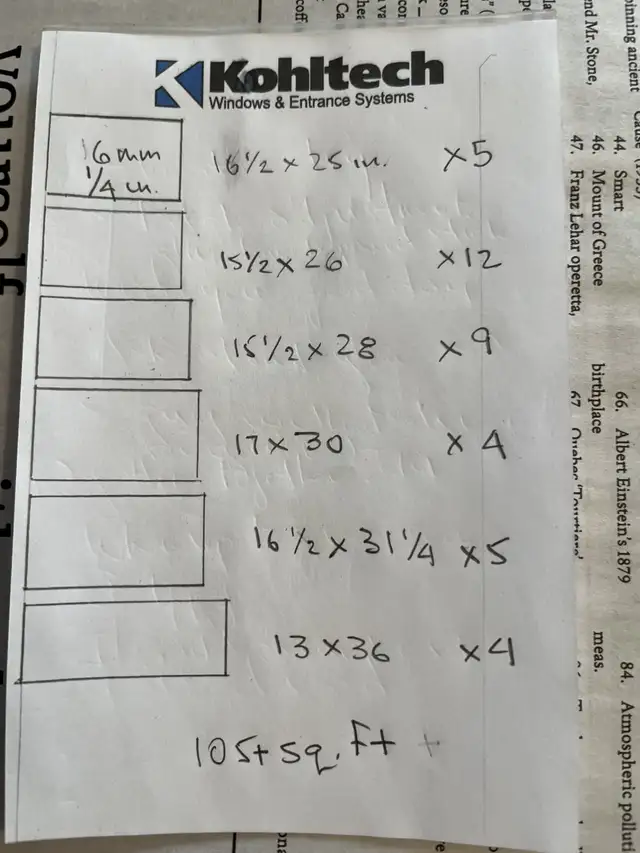 Kohltech
Windows & Entrance Systems
16mm
1/4 in.
16 1/2 x 25 in. x5
15 1/2 x 26 x12
15 1/2 x 28 x9
17 x 30 x 4
16 1/2 x 31 1/4 x5
13 x 36 x4
105+ sq. ft +
44. Smart
46. Mount of Greece
47. Franz Lehar operetta,
birthplace
66. Albert Einstein's 1879
meas.
84. Atmospheric polluti
inning ancient
nd Mr. Stone,